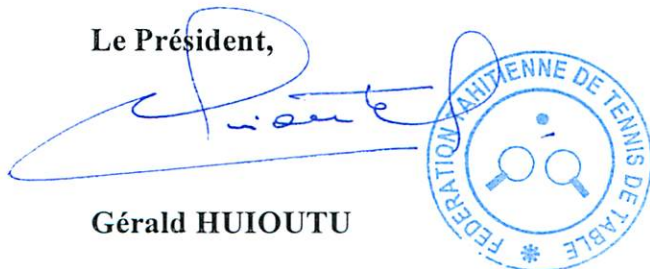 Le Président,
FÉDÉRATION TAHITIENNE DE TENNIS DE TABLE
Gérald HUIOUTU